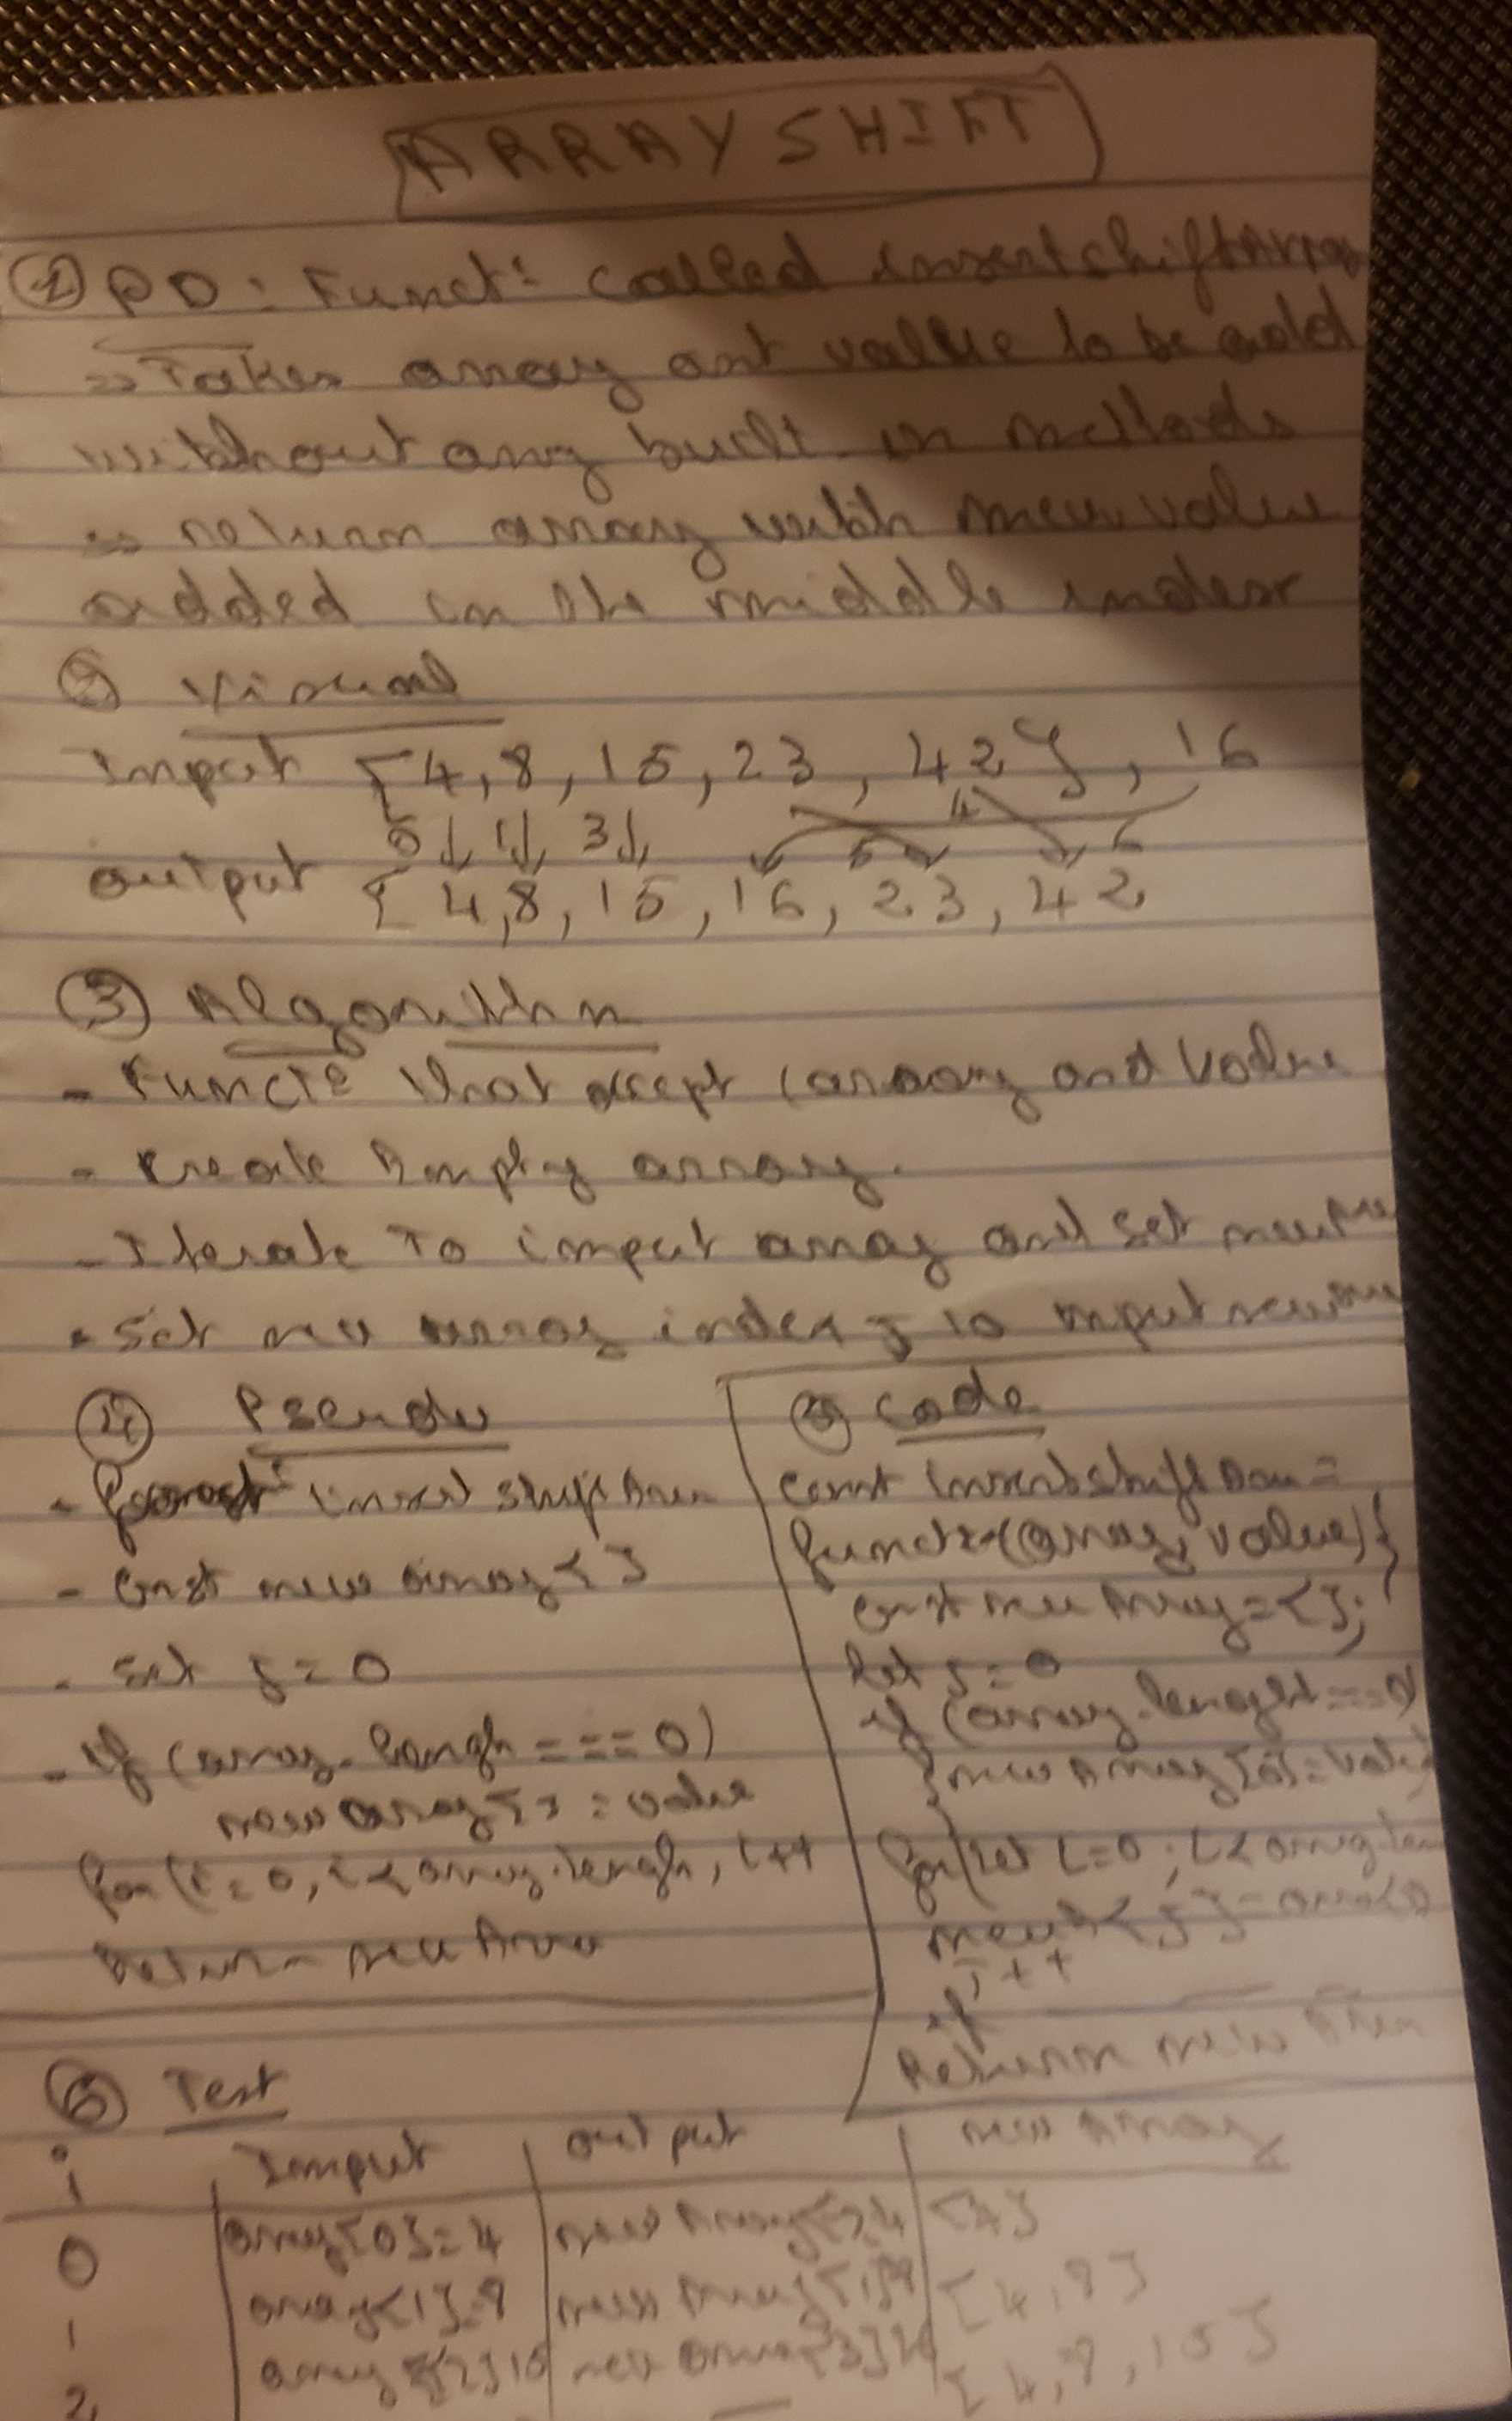 ARRAY SHIFT
① PD: Funct° called insertshiftArray
=> Takes array ant value to be add
without any built in methods
=> return array with new value
added in the middle index
② Visual
Input [4,8,15,23,42], 16
0↓ 1↓ 3↓ 4 5 6
output [4,8,15,16,23,42
③ Algorithm
- Funct° that accept (array and value
- create Empty array.
- Iterate To input array and set
- Set new array index j to input
④ Pseudo
- insert shift Arra
- const new array []
- set j = 0
- if (array.lengh === 0)
new array [] = value
for (i=0, i< array.lengh, i++
Return new Arra
⑤ Code
const insertshiftArr =
funct°(array, value) {
const newArray = [];
let j = 0
if (array.lenght === 0)
{ new Array [0] = value
for (let i=0; i< array.len
newA [j] =
j++
if
Return new Arra
⑥ Test
i Input output new Array
0 array[0] = 4 new Array [] 4 [4]
1 array[1] = 8 new Array [1] 8 [4,8]
2 array [2] 15 new array [3] [4,8,15]